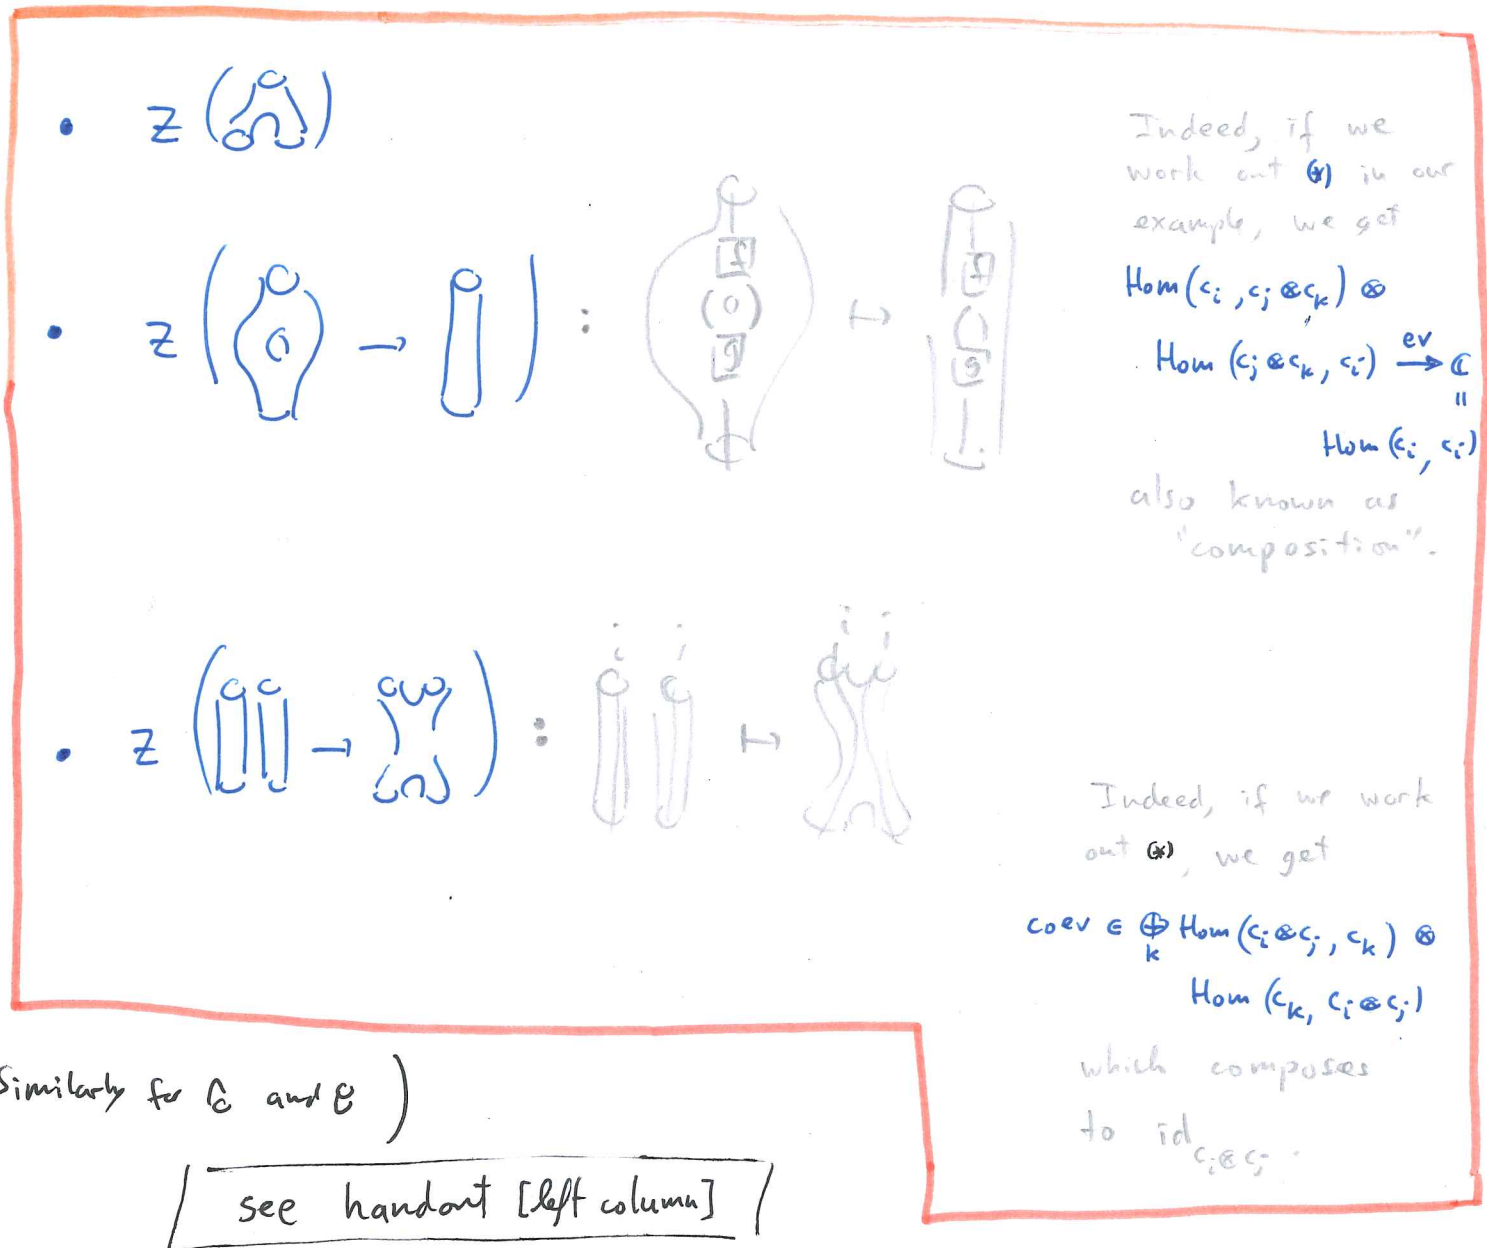 • Z ( )
Indeed, if we
work out (*) in our
example, we get
• Z ( → ) : f g ↦ f g
Hom(c_i, c_j ⊗ c_k) ⊗
Hom(c_j ⊗ c_k, c_i) →^{ev} ℂ
=
Hom(c_i, c_i)
also known as
"composition".
• Z ( → ) : i j ↦ i j
Indeed, if we work
out (*), we get
coev ∈ ⊕_k Hom(c_i ⊗ c_j, c_k) ⊗
Hom(c_k, c_i ⊗ c_j)
which composes
to id_{c_i ⊗ c_j}.
Similarly for and )
see handout [left column]